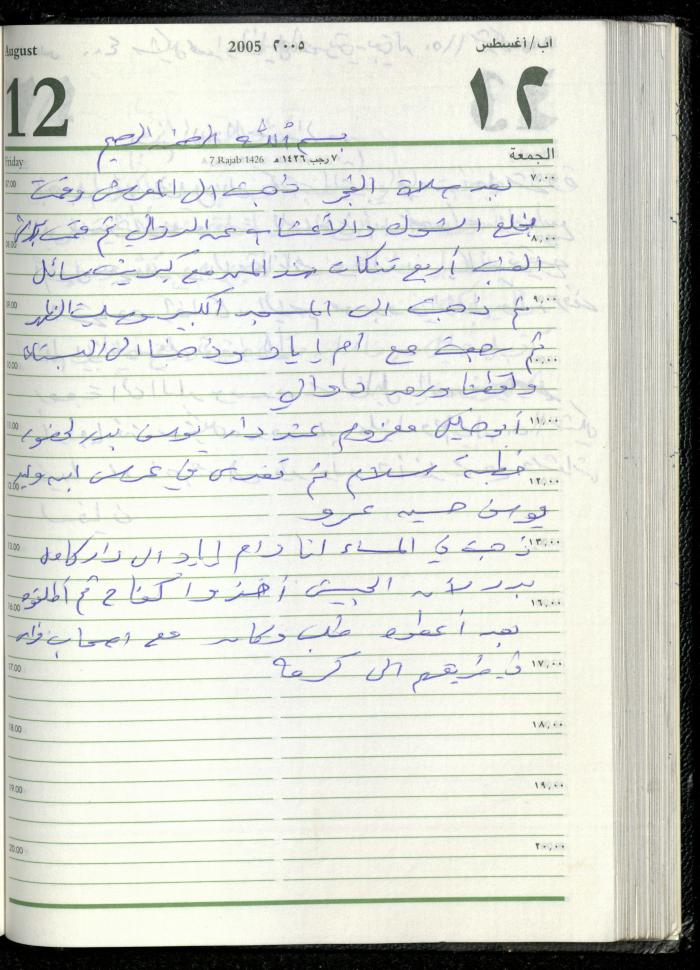 August 2005 ٢٠٠٥ آب/أغسطس
12 ١٢
بسم الله الرحمن الرحيم
Friday 7 Rajab 1426 ٧ رجب ١٤٢٦ هـ الجمعة
7.00 بعد صلاة الفجر ذهبت الى المعرش وقمت ٧,٠٠
بخلع الشوك والأعشاب عن الدوالي ثم قمت
8.00 أربع تنكات مع كبريت سائل ٨,٠٠
9.00 ثم ذهبت الى المسجد الكبير وصليت الظهر ٩,٠٠
10.00 ثم رجعت مع أم إياد وذهبنا الى البستان ١٠,٠٠
ولقطنا ورق دوالي
11.00 أبو معزوم عند دار يوسف بدر لحضور ١١,٠٠
12.00 خطبة سلام ثم تغدى في عرس ابن وليد ١٢,٠٠
يوسف حسين عمرو
13.00 ذهبت في المساء انا وام إياد الى دار كامل ١٣,٠٠
بدر لأن الجيش أخذوا كفاح ثم أطلقوه
16.00 بعد أعطوه طلب وكان مع اصحاب ١٦,٠٠
17.00 في طريقهم الى كرمة ١٧,٠٠
18.00 ١٨,٠٠
19.00 ١٩,٠٠
20.00 ٢٠,٠٠